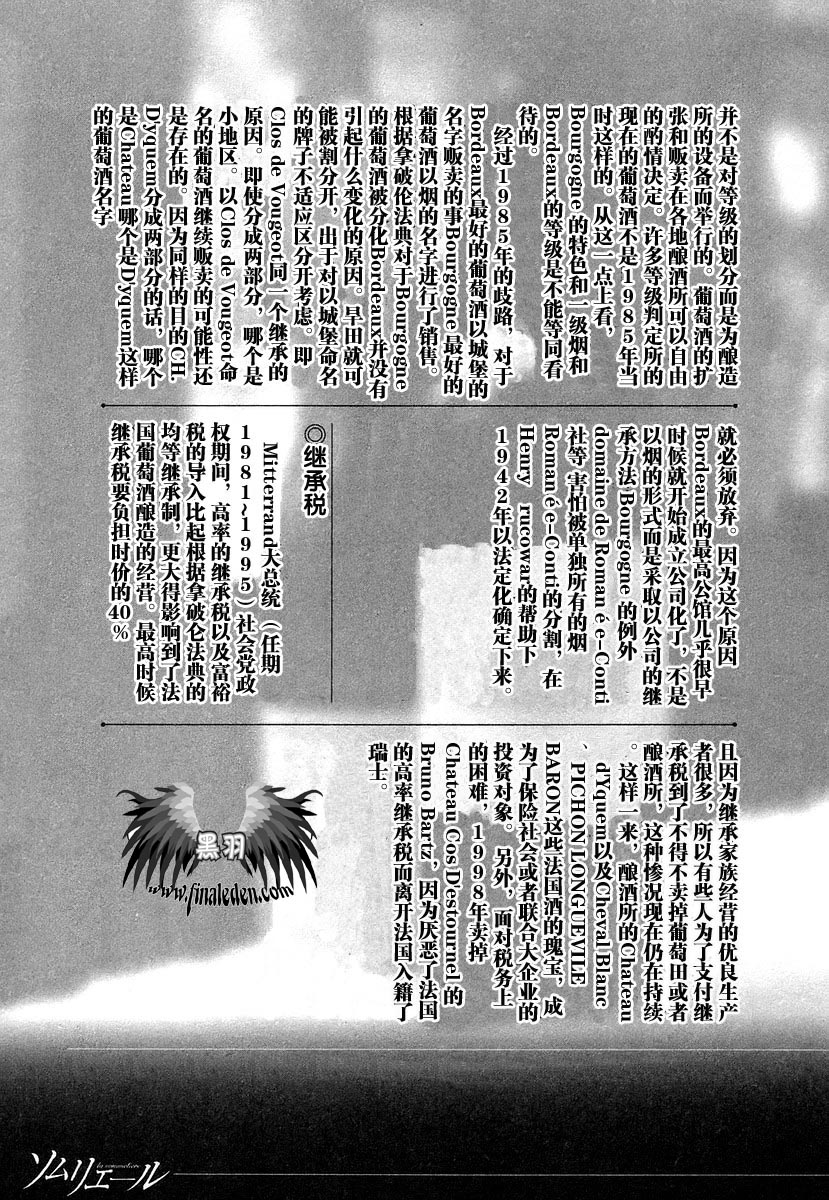 并不是对等级的划分而是为酿造
所的设备而举行的。葡萄酒的扩
张和贩卖在各地酿酒所可以自由
的酌情决定。许多等级判定所的
现在的葡萄酒不是1985年当
时这样的。从这一点上看，
Bourgogne 的特色和一级烟和
Bordeaux的等级是不能等同看
待的。
经过1985年的歧路，对于
Bordeaux最好的葡萄酒以城堡的
名字贩卖的事Bourgogne 最好的
葡萄酒以烟的名字进行了销售。
根据拿破伦法典对于Bourgogne
的葡萄酒被分化Bordeaux并没有
引起什么变化的原因。旱田就可
能被割分开，出于对以城堡命名
的牌子不适应区分开考虑。即
Clos de Vougeot同一个继承的
原因。即使分成两部分，哪个是
小地区。以Clos de Vougeot命
名的葡萄酒继续贩卖的可能性还
是存在的。因为同样的目的CH.
D'yquem分成两部分的话，哪个
是Chateau哪个是D'yquem这样
的葡萄酒名字
就必须放弃。因为这个原因
Bordeaux的最高公馆几乎很早
时候就开始成立公司化了，不是
以烟的形式而是采取以公司的继
承方法 Bourgogne 的例外
domaine de Roman é e-Conti
社等 害怕被单独所有的烟
Roman é e-Conti的分割，在
Henry rucowar的帮助下
1942年以法定化确定下来。
◎继承税
Mitterrand大总统（任期
1981~1995）社会党政
权期间，高率的继承税以及富裕
税的导入比起根据拿破仑法典的
均等继承制，更大得影响到了法
国葡萄酒酿造的经营。最高时候
继承税要负担时价的40%
且因为继承家族经营的优良生产
者很多，所以有些人为了支付继
承税到了不得不卖掉葡萄田或者
酿酒所，这种惨况现在仍在持续
。这样一来，酿酒所的Chateau
d'Yquem以及Cheval Blanc
、PICHON LONGUEVILE
BARON这些法国酒的瑰宝，成
为了保险社会或者联合大企业的
投资对象。另外，面对税务上
的困难，1998年卖掉
Chateau Cos D'estournel 的
Bruno Bartz，因为厌恶了法国
的高率继承税而离开法国入籍了
瑞士。
黑羽
www.finaleden.com
ソムリエール